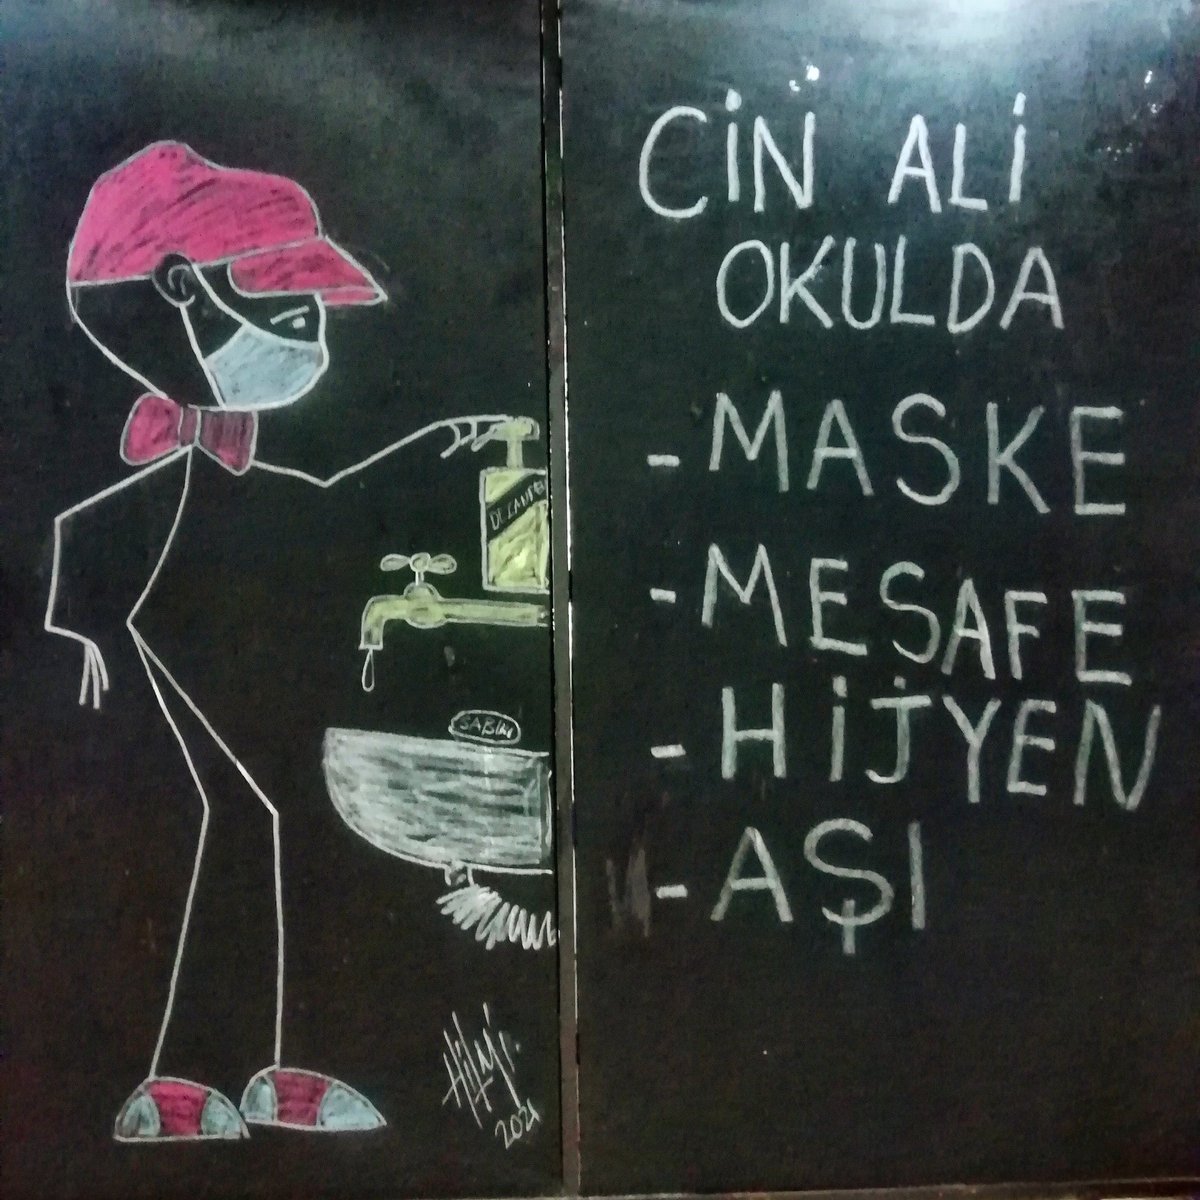 CİN ALİ
OKULDA
- MASKE
- MESAFE
- HİJYEN
- AŞI
SABUN
Hilmi
2021